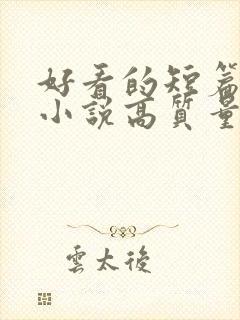 好看的短篇
小說高質量
雲太後